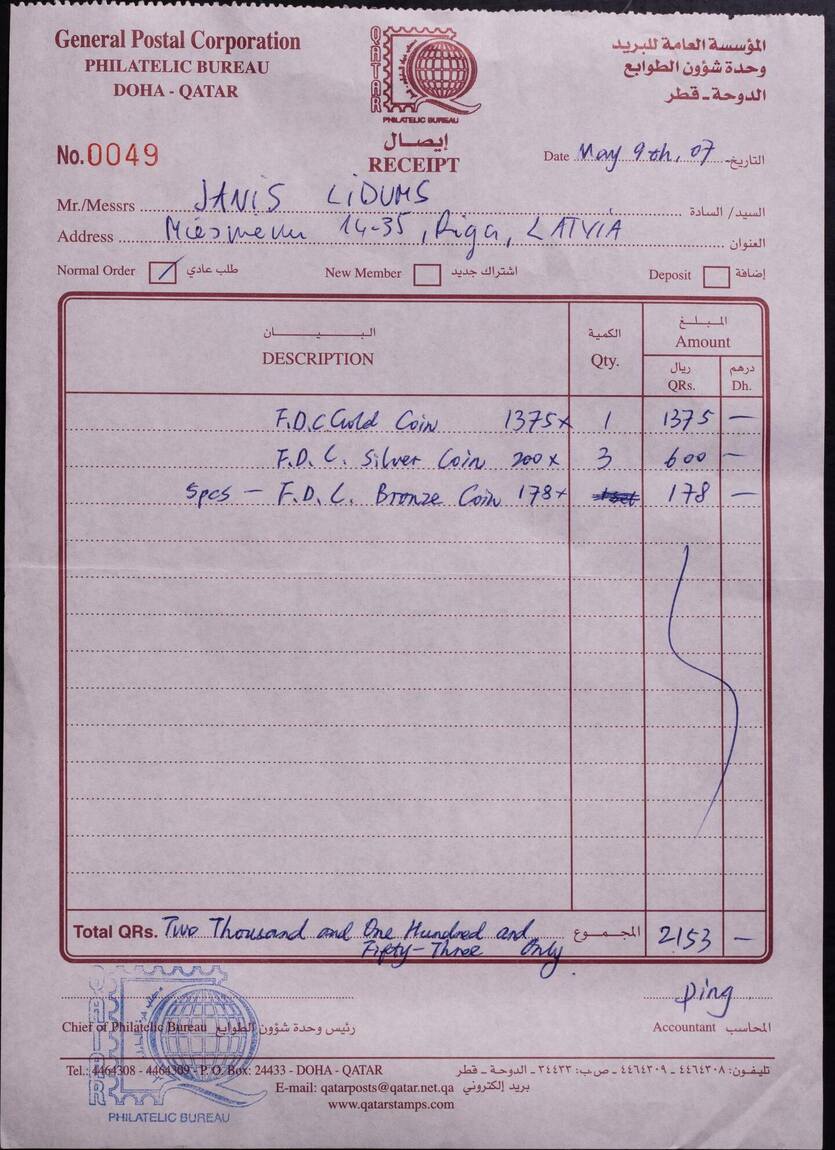 General Postal Corporation
PHILATELIC BUREAU
DOHA - QATAR
QATAR
PHILATELIC BUREAU
المؤسسة العامة للبريد
وحدة شؤون الطوابع
الدوحة - قطر
No. 0049
إيصال
RECEIPT
Date May 9th, 07 التاريخ
Mr./Messrs JANIS LIDUMS السيد/ السادة
Address 14-35, Riga, LATVIA العنوان
Normal Order طلب عادي New Member اشتراك جديد Deposit إضافة
البيان الكمية المبلغ
DESCRIPTION Qty. Amount
ريال درهم
QRs. Dh.
F.D.C Gold Coin 1375x 1 1375 —
F.D.C. Silver Coin 200x 3 600 —
5pcs — F.D.C. Bronze Coin 178x 178 —
Total QRs. Two Thousand and One Hundred and المجموع 2153 —
Fifty-Three Only.
Ping
Chief of Philatelic Bureau رئيس وحدة شؤون الطوابع Accountant المحاسب
Tel.: 4464308 - 4464309 - P. O. Box: 24433 - DOHA - QATAR تليفون: ٤٤٦٤٣٠٨ - ٤٤٦٤٣٠٩ - ص.ب: ٢٤٤٣٣ - الدوحة - قطر
E-mail: qatarposts@qatar.net.qa بريد إلكتروني
www.qatarstamps.com
QATAR
PHILATELIC BUREAU